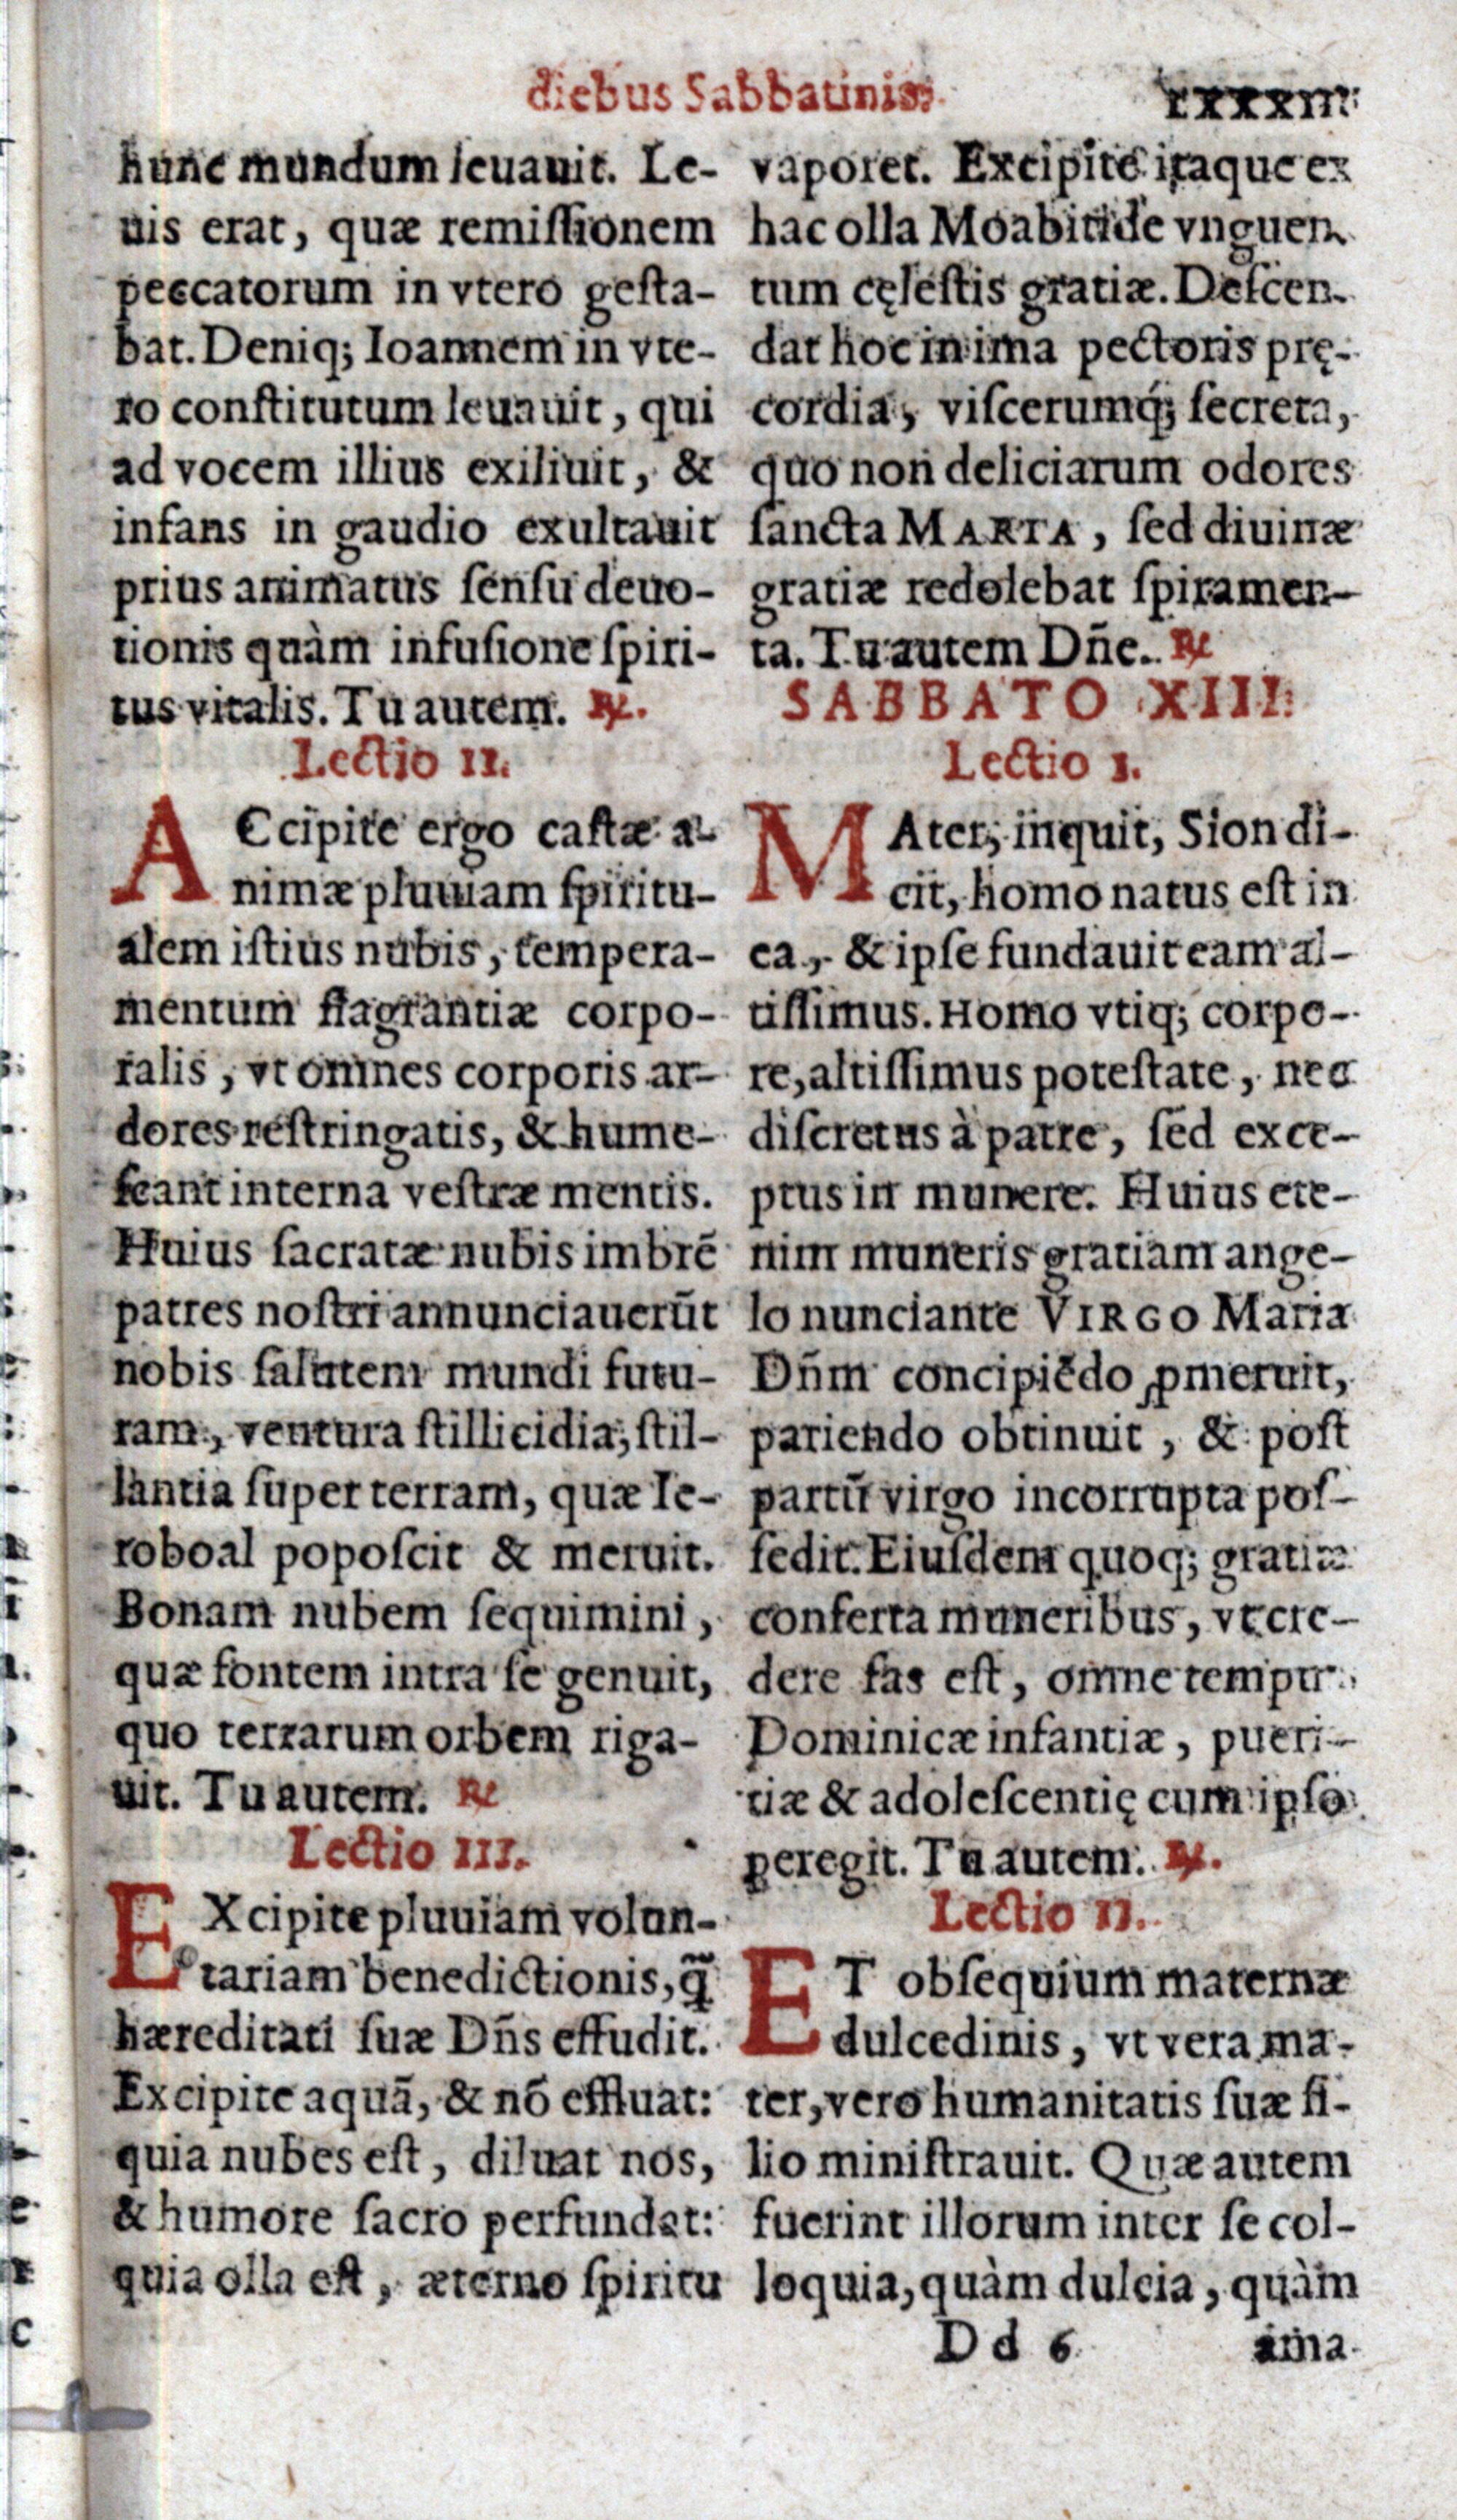 diebus Sabbatinis.
hunc mundum leuauit. Le-
uis erat, quæ remiſſionem
peccatorum in vtero geſta-
bat. Deniq; Ioannem in vte-
ro conſtitutum leuauit, qui
ad vocem illius exiliuit, &
infans in gaudio exultauit
prius animatus ſenſu deuo-
tionis quàm infuſione ſpiri-
tus vitalis. Tu autem. ℟.
Lectio II.
ACcipite ergo caſtæ a-
nimæ pluuiam ſpiritu-
alem iſtius nubis, tempera-
mentum flagrantiæ corpo-
ralis, vt omnes corporis ar-
dores reſtringatis, & hume-
ſcant interna veſtræ mentis.
Huius ſacratæ nubis imbrẽ
patres noſtri annunciauerũt
nobis ſalutem mundi futu-
ram, ventura ſtillicidia, ſtil-
lantia ſuper terram, quæ Ie-
roboal popoſcit & meruit.
Bonam nubem ſequimini,
quæ fontem intra ſe genuit,
quo terrarum orbem riga-
uit. Tu autem. ℟
Lectio III.
EXcipite pluuiam volun-
tariam benedictionis, q̃
hæreditati ſuæ Dñs effudit.
Excipite aquã, & nõ effluat:
quia nubes eſt, diluat nos,
& humore ſacro perfundat:
quia olla eſt, æterno ſpiritu
vaporet. Excipite itaque ex
hac olla Moabitide vnguen-
tum cęleſtis gratiæ. Deſcen-
dat hoc in ima pectoris prę-
cordia, viſcerumq́; ſecreta,
quo non deliciarum odores
ſancta MARIA, ſed diuinæ
gratiæ redolebat ſpiramen-
ta. Tu autem Dñe. ℟
SABBATO XIII.
Lectio I.
MAter, inquit, Sion di-
cit, homo natus eſt in
ea, & ipſe fundauit eam al-
tiſſimus. Homo vtiq; corpo-
re, altiſſimus poteſtate, nec
diſcretus à patre, ſed exce-
ptus in munere. Huius ete-
nim muneris gratiam ange-
lo nunciante VIRGO Maria
Dñm concipiẽdo ꝓmeruit,
pariendo obtinuit, & poſt
partũ virgo incorrupta poſ-
ſedit. Eiuſdem quoq; gratiæ
conferta muneribus, vt cre-
dere fas eſt, omne tempus
Dominicæ infantiæ, pueri-
tiæ & adoleſcentię cum ipſo
peregit. Tu autem. ℟.
Lectio II.
ET obſequium maternæ
dulcedinis, vt vera ma-
ter, vero humanitatis ſuæ fi-
lio miniſtrauit. Quæ autem
fuerint illorum inter ſe col-
loquia, quàm dulcia, quàm
Dd 6 ama-